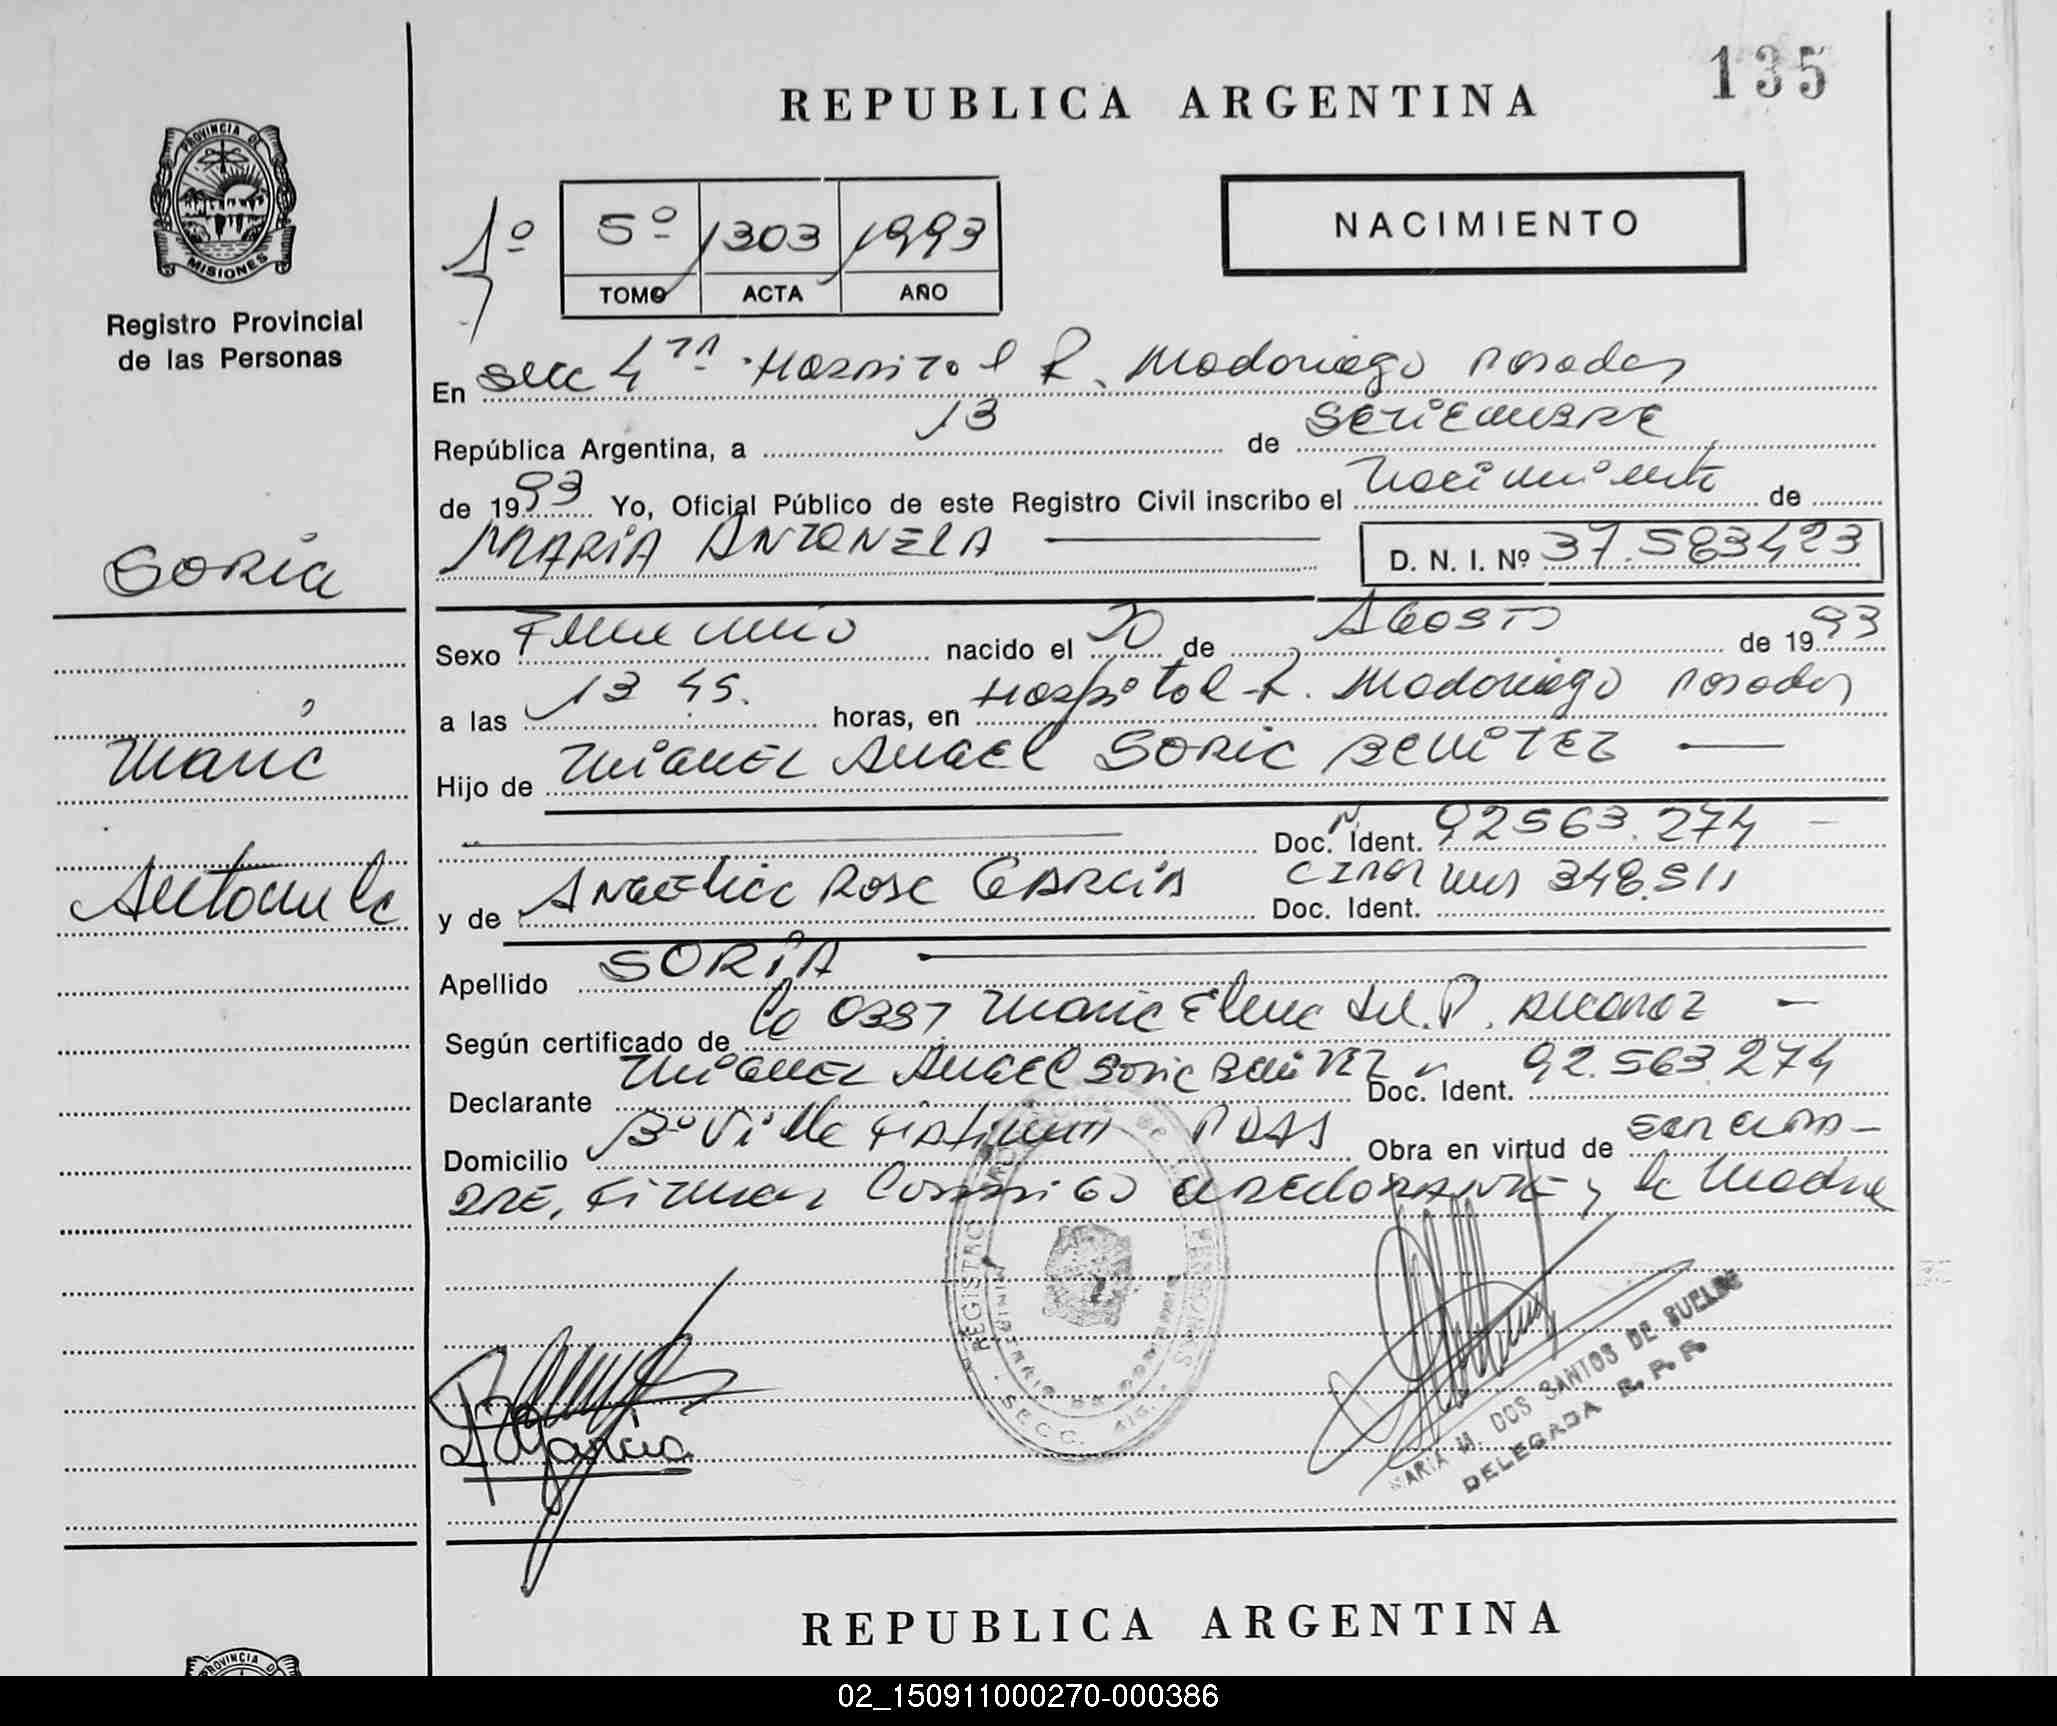 135
REPUBLICA ARGENTINA
PROVINCIA DE
MISIONES
Registro Provincial
de las Personas
1º
5º 1303 1993
TOMO ACTA AÑO
NACIMIENTO
En Secc 4ta Hospital R. Madariaga Posadas
República Argentina, a 13 de SETIEMBRE
de 1993 Yo, Oficial Público de este Registro Civil inscribo el Nacimiento de
MARIA ANTONELA
D. N. I. Nº 37.583423
Soria
Maria
Antonela
Sexo Femenino nacido el 20 de AGOSTO de 1993
a las 13 45. horas, en Hospital R. Madariaga Posadas
Hijo de MIGUEL ANGEL SORIA BENITEZ
Doc. Ident. 92563.274
y de ANGELICA ROSA GARCIA Doc. Ident. 348.511
Apellido SORIA
Según certificado de la Obst Maria Elena del P.
Declarante MIGUEL ANGEL Soria Benitez Doc. Ident. 92.563.274
Domicilio Bº Villa PDAS Obra en virtud de
Firman Conmigo DECLORANTE y la Madre
REGISTRO PROVINCIAL DE LAS PERSONAS
MINISTERIO DE GOBIERNO
SECC. 4ta.
A R Garcia
MARIA M. DOS SANTOS DE BUELDE
DELEGADA R. P. P.
REPUBLICA ARGENTINA
PROVINCIA D
02_150911000270-000386